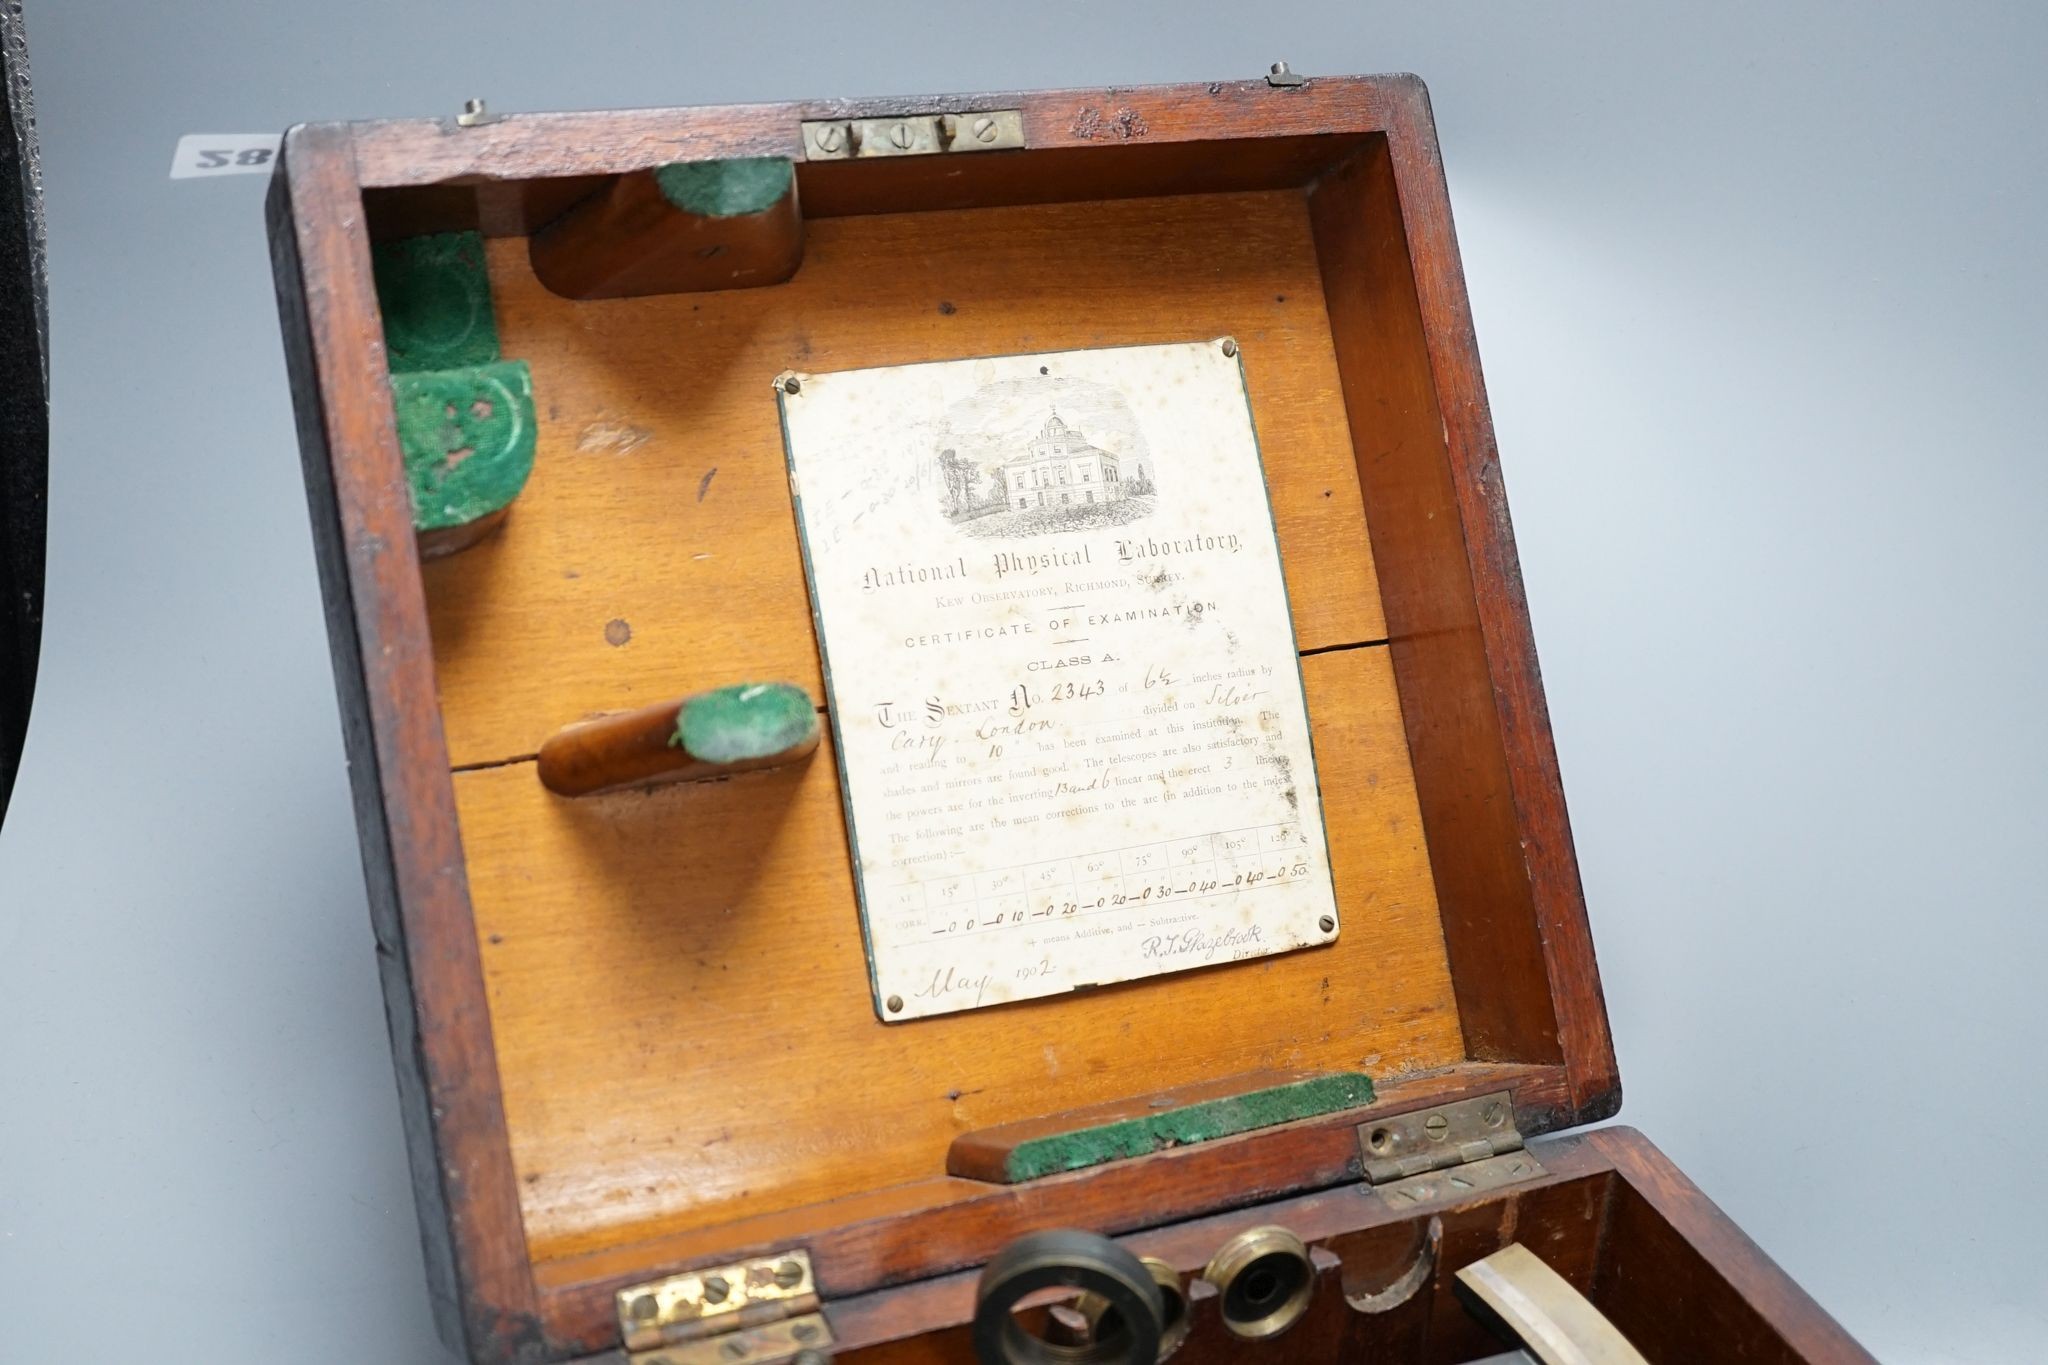 28
National Physical Laboratory,
KEW OBSERVATORY, RICHMOND, SURREY.
CERTIFICATE OF EXAMINATION.
CLASS A.
THE SEXTANT NO. 2343 of 6½ inches radius by
Cary. London. divided on Silver
and reading to 10" has been examined at this institution. The
shades and mirrors are found good. The telescopes are also satisfactory and
the powers are for the inverting 13 and 6 linear and the erect 3 linear
The following are the mean corrections to the arc (in addition to the index
correction):—
AT 15° 30° 45° 60° 75° 90° 105° 120°
CORR. —0 0 —0 10 —0 20 —0 20 —0 30 —0 40 —0 40 —0 50
+ means Additive, and — Subtractive.
R.T. Glazebrook.
May 1902
Director.